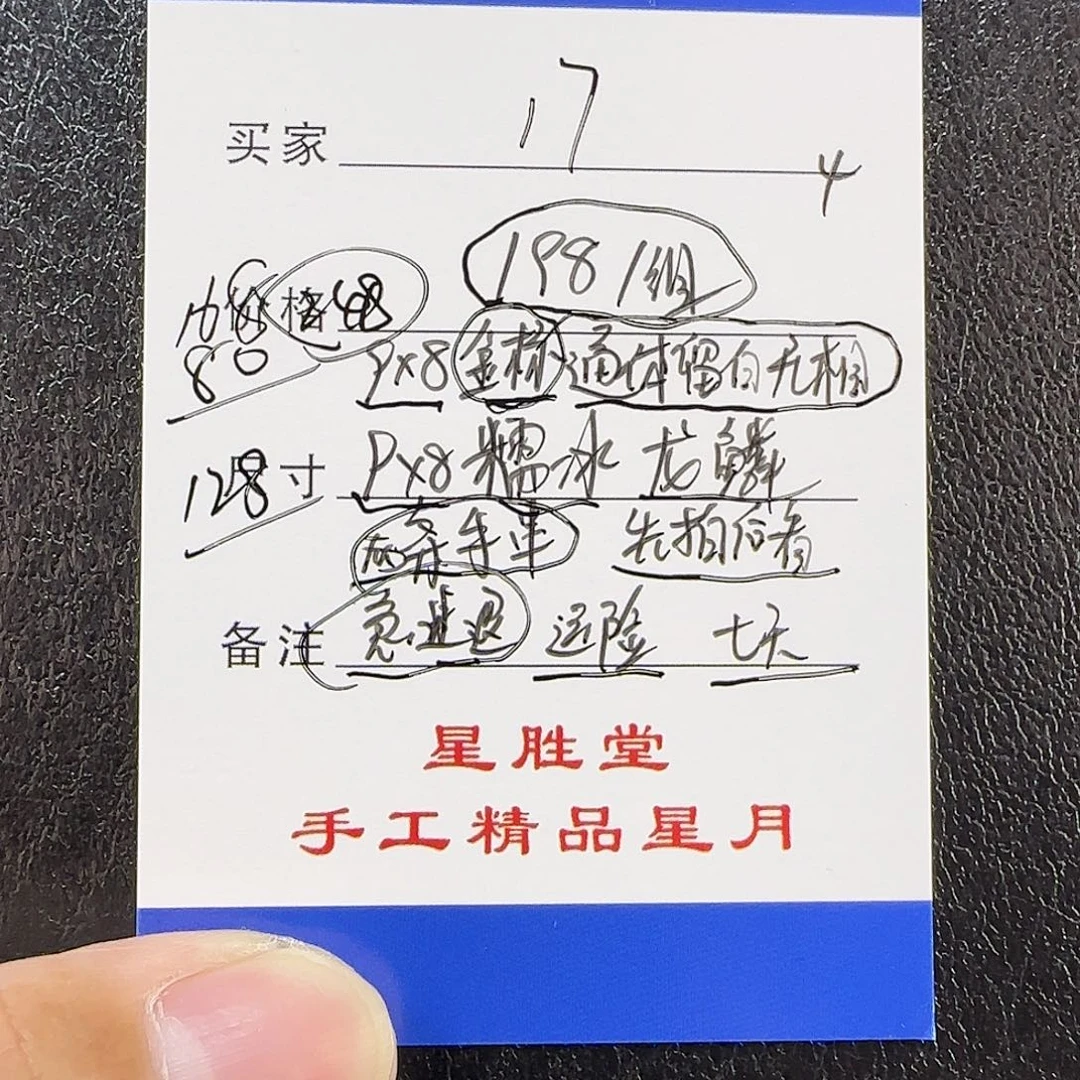 买家 17
4
198/组
价格 48
80
9x8 金标 通体留白无相
128 尺寸 9x8 糯冰 龙鳞
手串 先拍后看
备注 运险 七天
星胜堂
手工精品星月